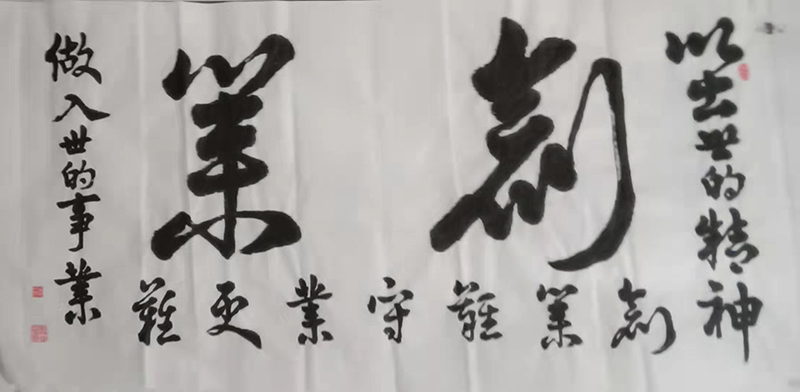 以出世的精神
創業
創業難守業更難
做入世的事業